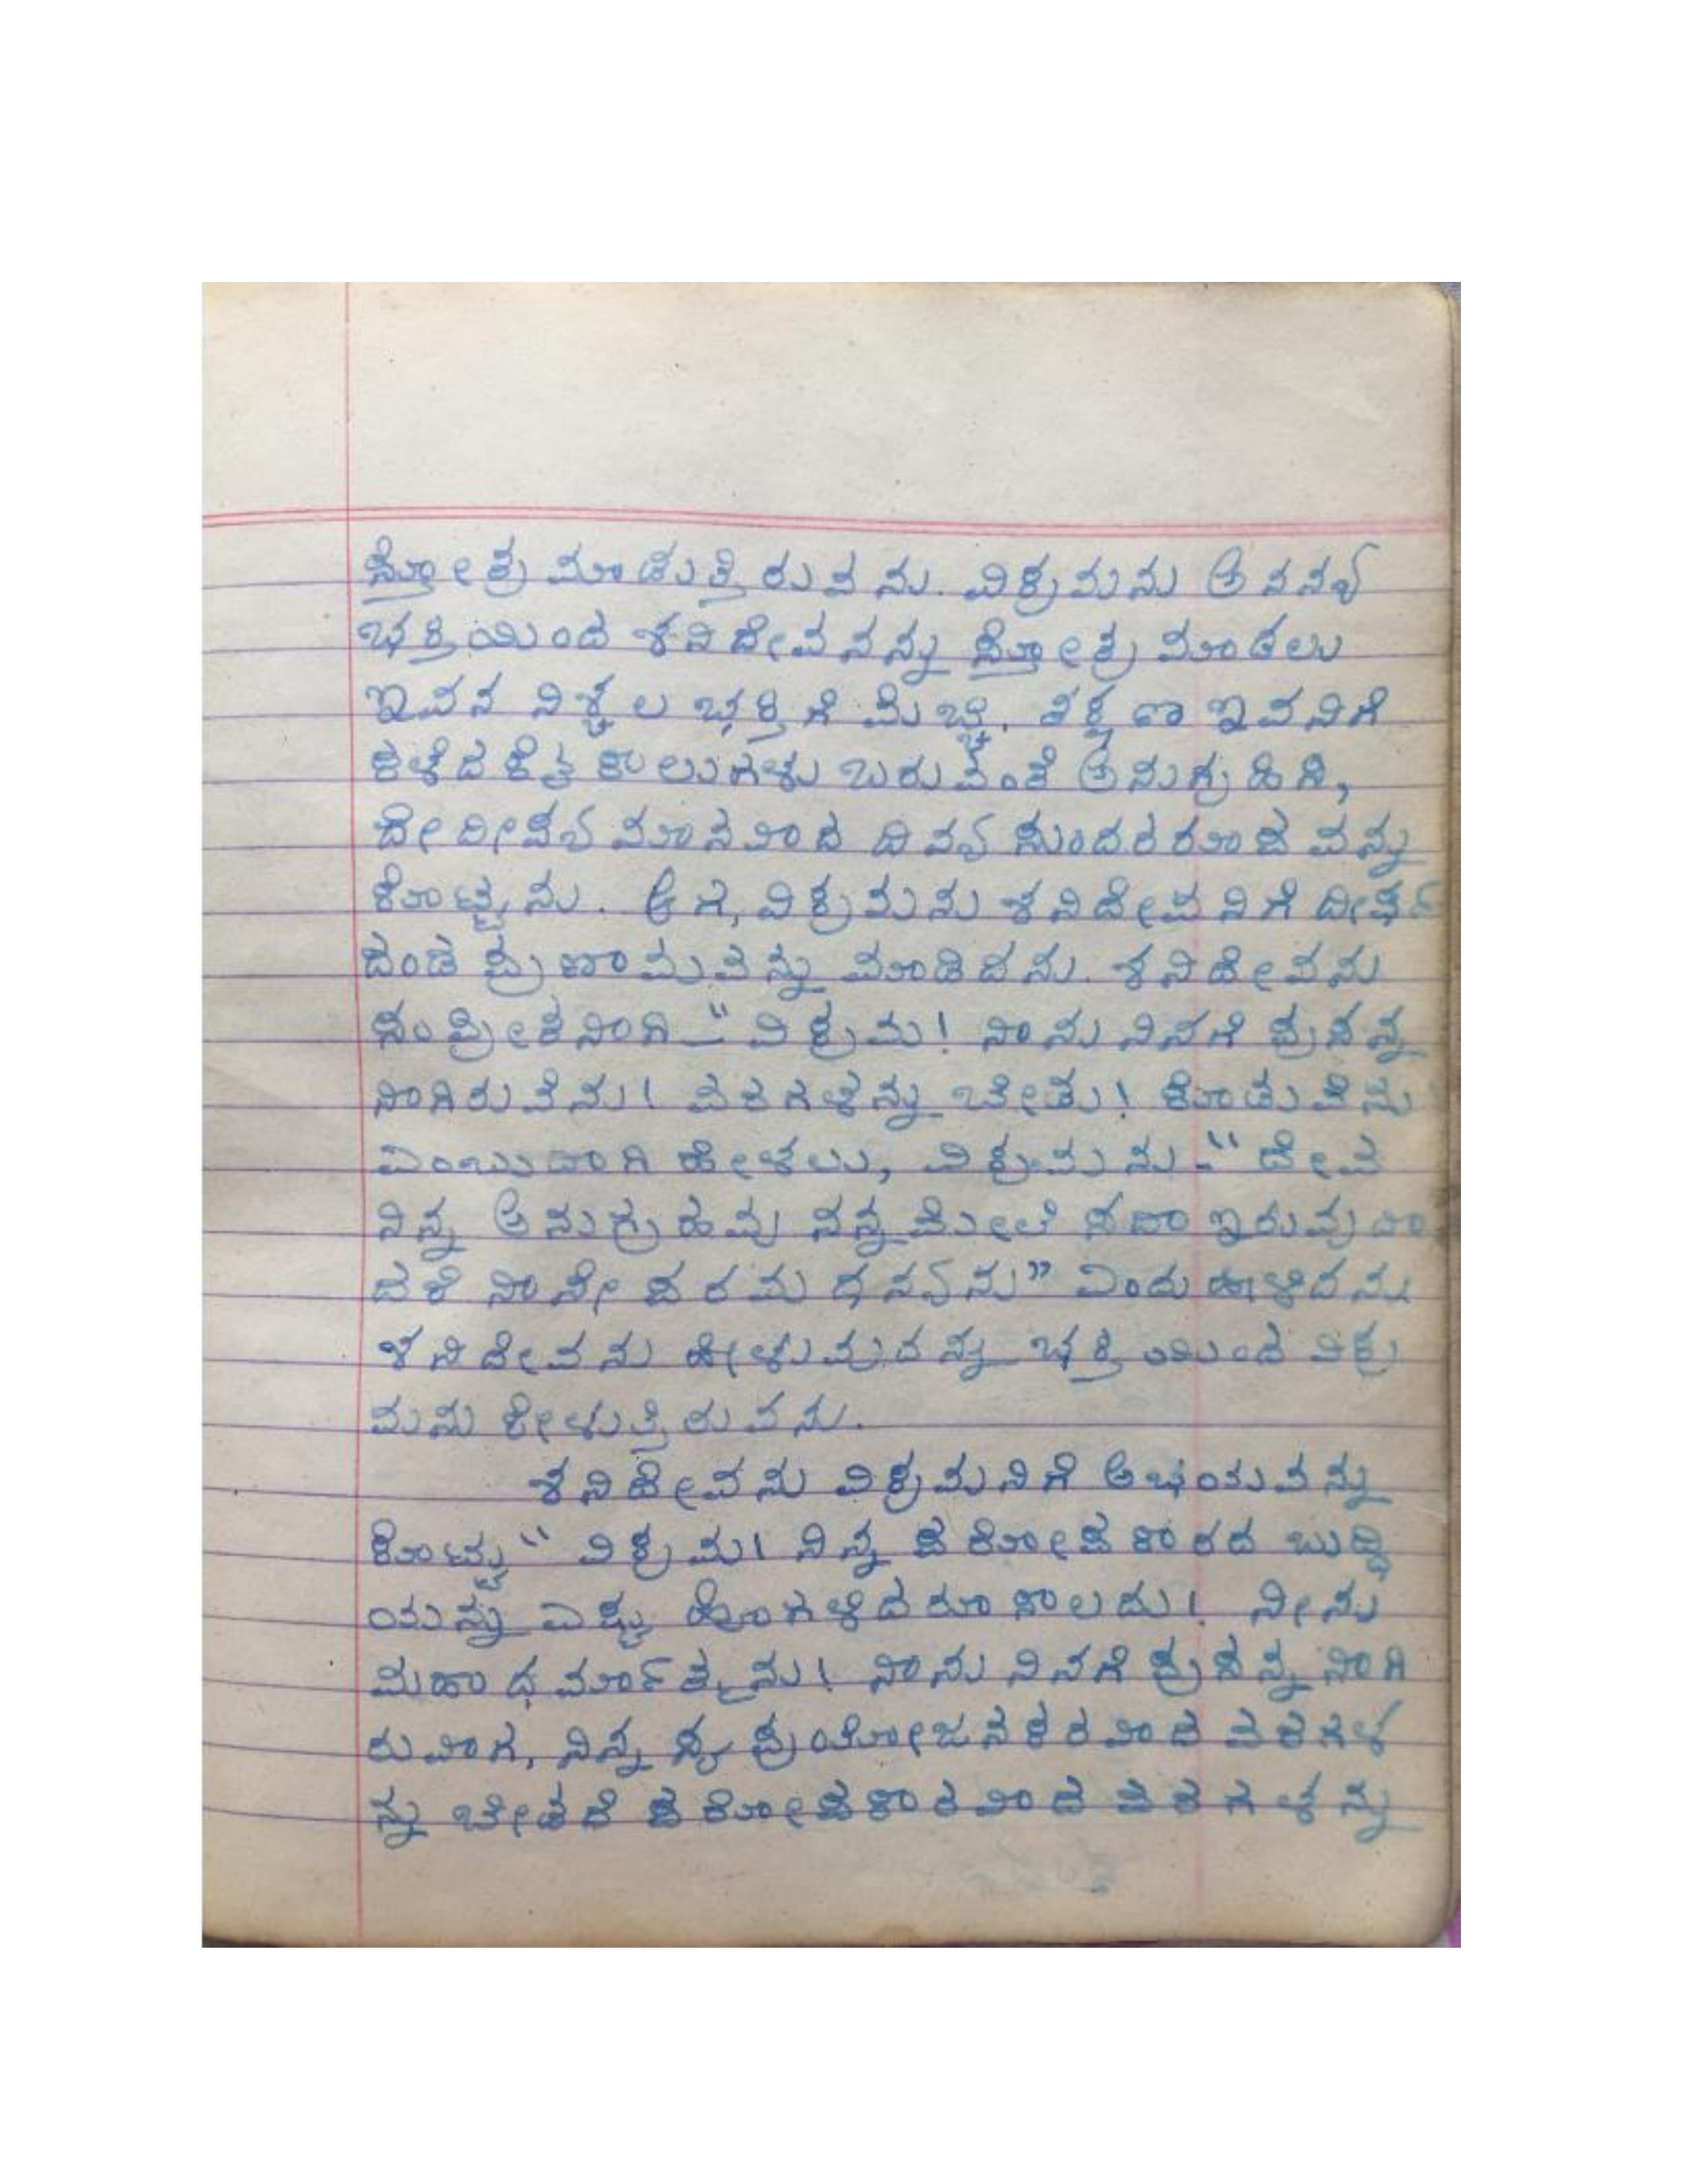 ಸ್ತೋತ್ರ ಮಾಡುತ್ತಿರುವನು. ವಿಕ್ರಮನು ಅನನ್ಯ
ಭಕ್ತಿಯಿಂದ ಶನಿದೇವನನ್ನು ಸ್ತೋತ್ರ ಮಾಡಲು
ಇವನ ನಿಶ್ಚಲ ಭಕ್ತಿಗೆ ಮೆಚ್ಚಿ. ತಕ್ಷಣ ಇವನಿಗೆ
ಕಳೆದ ಕೈ ಕಾಲುಗಳು ಬರುವಂತೆ ಅನುಗ್ರಹಿಸಿ,
ದೇದೀಪ್ಯಮಾನವಾದ ದಿವ್ಯ ಸುಂದರರೂಪವನ್ನು
ಕೊಟ್ಟನು. ಆಗ, ವಿಕ್ರಮನು ಶನಿದೇವನಿಗೆ ದೀರ್ಘ
ದಂಡ ಪ್ರಣಾಮವನ್ನು ಮಾಡಿದನು. ಶನಿದೇವನು
ಸಂಪ್ರೀತನಾಗಿ - "ವಿಕ್ರಮ! ನಾನು ನಿನಗೆ ಪ್ರಸನ್ನ
ನಾಗಿರುವೆನು! ವರಗಳನ್ನು ಬೇಡು! ಕೊಡುವೆನು
ಎಂಬುದಾಗಿ ಹೇಳಲು, ವಿಕ್ರಮನು - "ದೇವ
ನಿನ್ನ ಅನುಗ್ರಹವು ನನ್ನ ಮೇಲೆ ಸದಾ ಇರುವುದಾ
ದರೆ ನಾನೇ ಪರಮ ಧನ್ಯನು" ಎಂದು ಹೇಳಿದನು
ಶನಿದೇವನು ಹೇಳುವುದನ್ನು ಭಕ್ತಿಯಿಂದ ವಿಕ್ರ
ಮನು ಕೇಳುತ್ತಿರುವನು.
ಶನಿದೇವನು ವಿಕ್ರಮನಿಗೆ ಅಭಯವನ್ನು
ಕೊಟ್ಟು "ವಿಕ್ರಮ! ನಿನ್ನ ಪರೋಪಕಾರದ ಬುದ್ಧಿ
ಯನ್ನು ಎಷ್ಟು ಹೊಗಳಿದರೂ ಸಾಲದು! ನೀನು
ಮಹಾ ಧರ್ಮಾತ್ಮನು! ನಾನು ನಿನಗೆ ಪ್ರಸನ್ನನಾಗಿ
ರುವಾಗ, ನಿನ್ನ ಸ್ವ ಪ್ರಯೋಜನಕರವಾದ ವರಗಳ
ನ್ನು ಬೇಡದೆ ಪರೋಪಕಾರವಾದ ವರಗಳನ್ನು